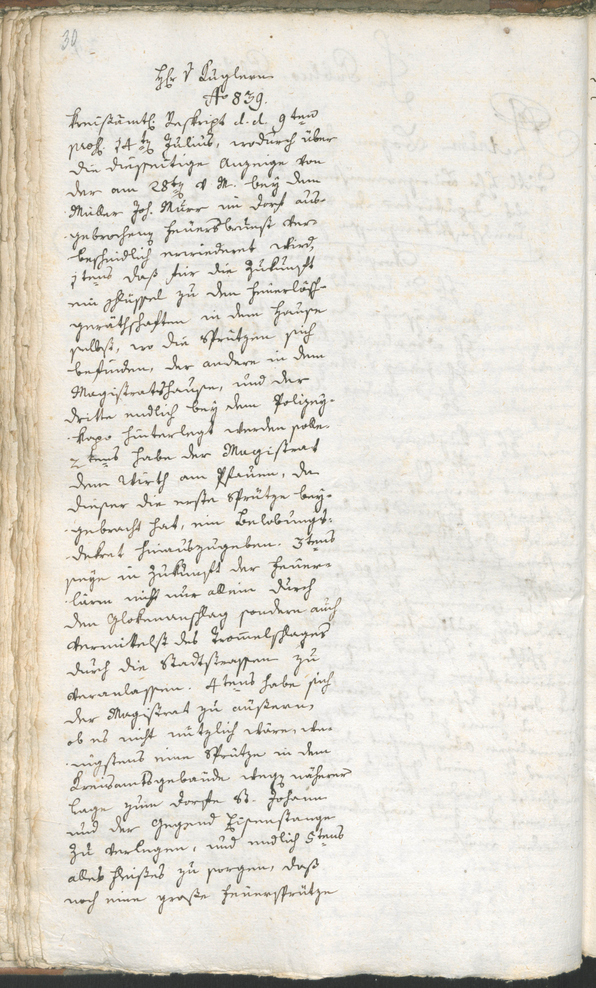 39
H. v Kuglern
No 839.
Kreisämtl Reskript d. d. 9ten
pros. 14 Julius, wodurch über
die diesseitige Anzeige von
der am 28ten v. M. bey dem
Müller Joh. Murr im Dorf aus-
gebrochenen Feuersbrunst ver-
bescheidlich erwiedert wird,
1tens daß für die Zukunft
ein Schlüssel zu den Feuerlösch-
geräthschaften in dem Hause
selbst, wo die Sprützen sich
befinden, der andere in dem
Magistratshause, und der
dritte endlich bey dem Polizey-
hinterlegt werden solle
2tens habe der Magistrat
dem Wirth am Pfauen, da
dieser die erste Sprütze bey-
gebracht hat, ein Belobungs-
dekret hinauszugeben. 3tens
seye in Zukunft der Feuer-
lärm nicht nur allein durch
den Glokenanschlag sondern auch
vermittelst des Trommelschlages
durch die Stadtstrassen zu
veranlassen. 4tens habe sich
der Magistrat zu äußern,
ob es nicht nützlich wäre, we-
nigstens eine Sprütze in dem
Kreisamtsgebäude wegen näherer
Lage zum Dorfe St. Johann
und der Gegend Eisenstange
zu verlegen, und endlich 5tens
alles Fleißes zu sorgen, daß
noch eine große Feuersprütze